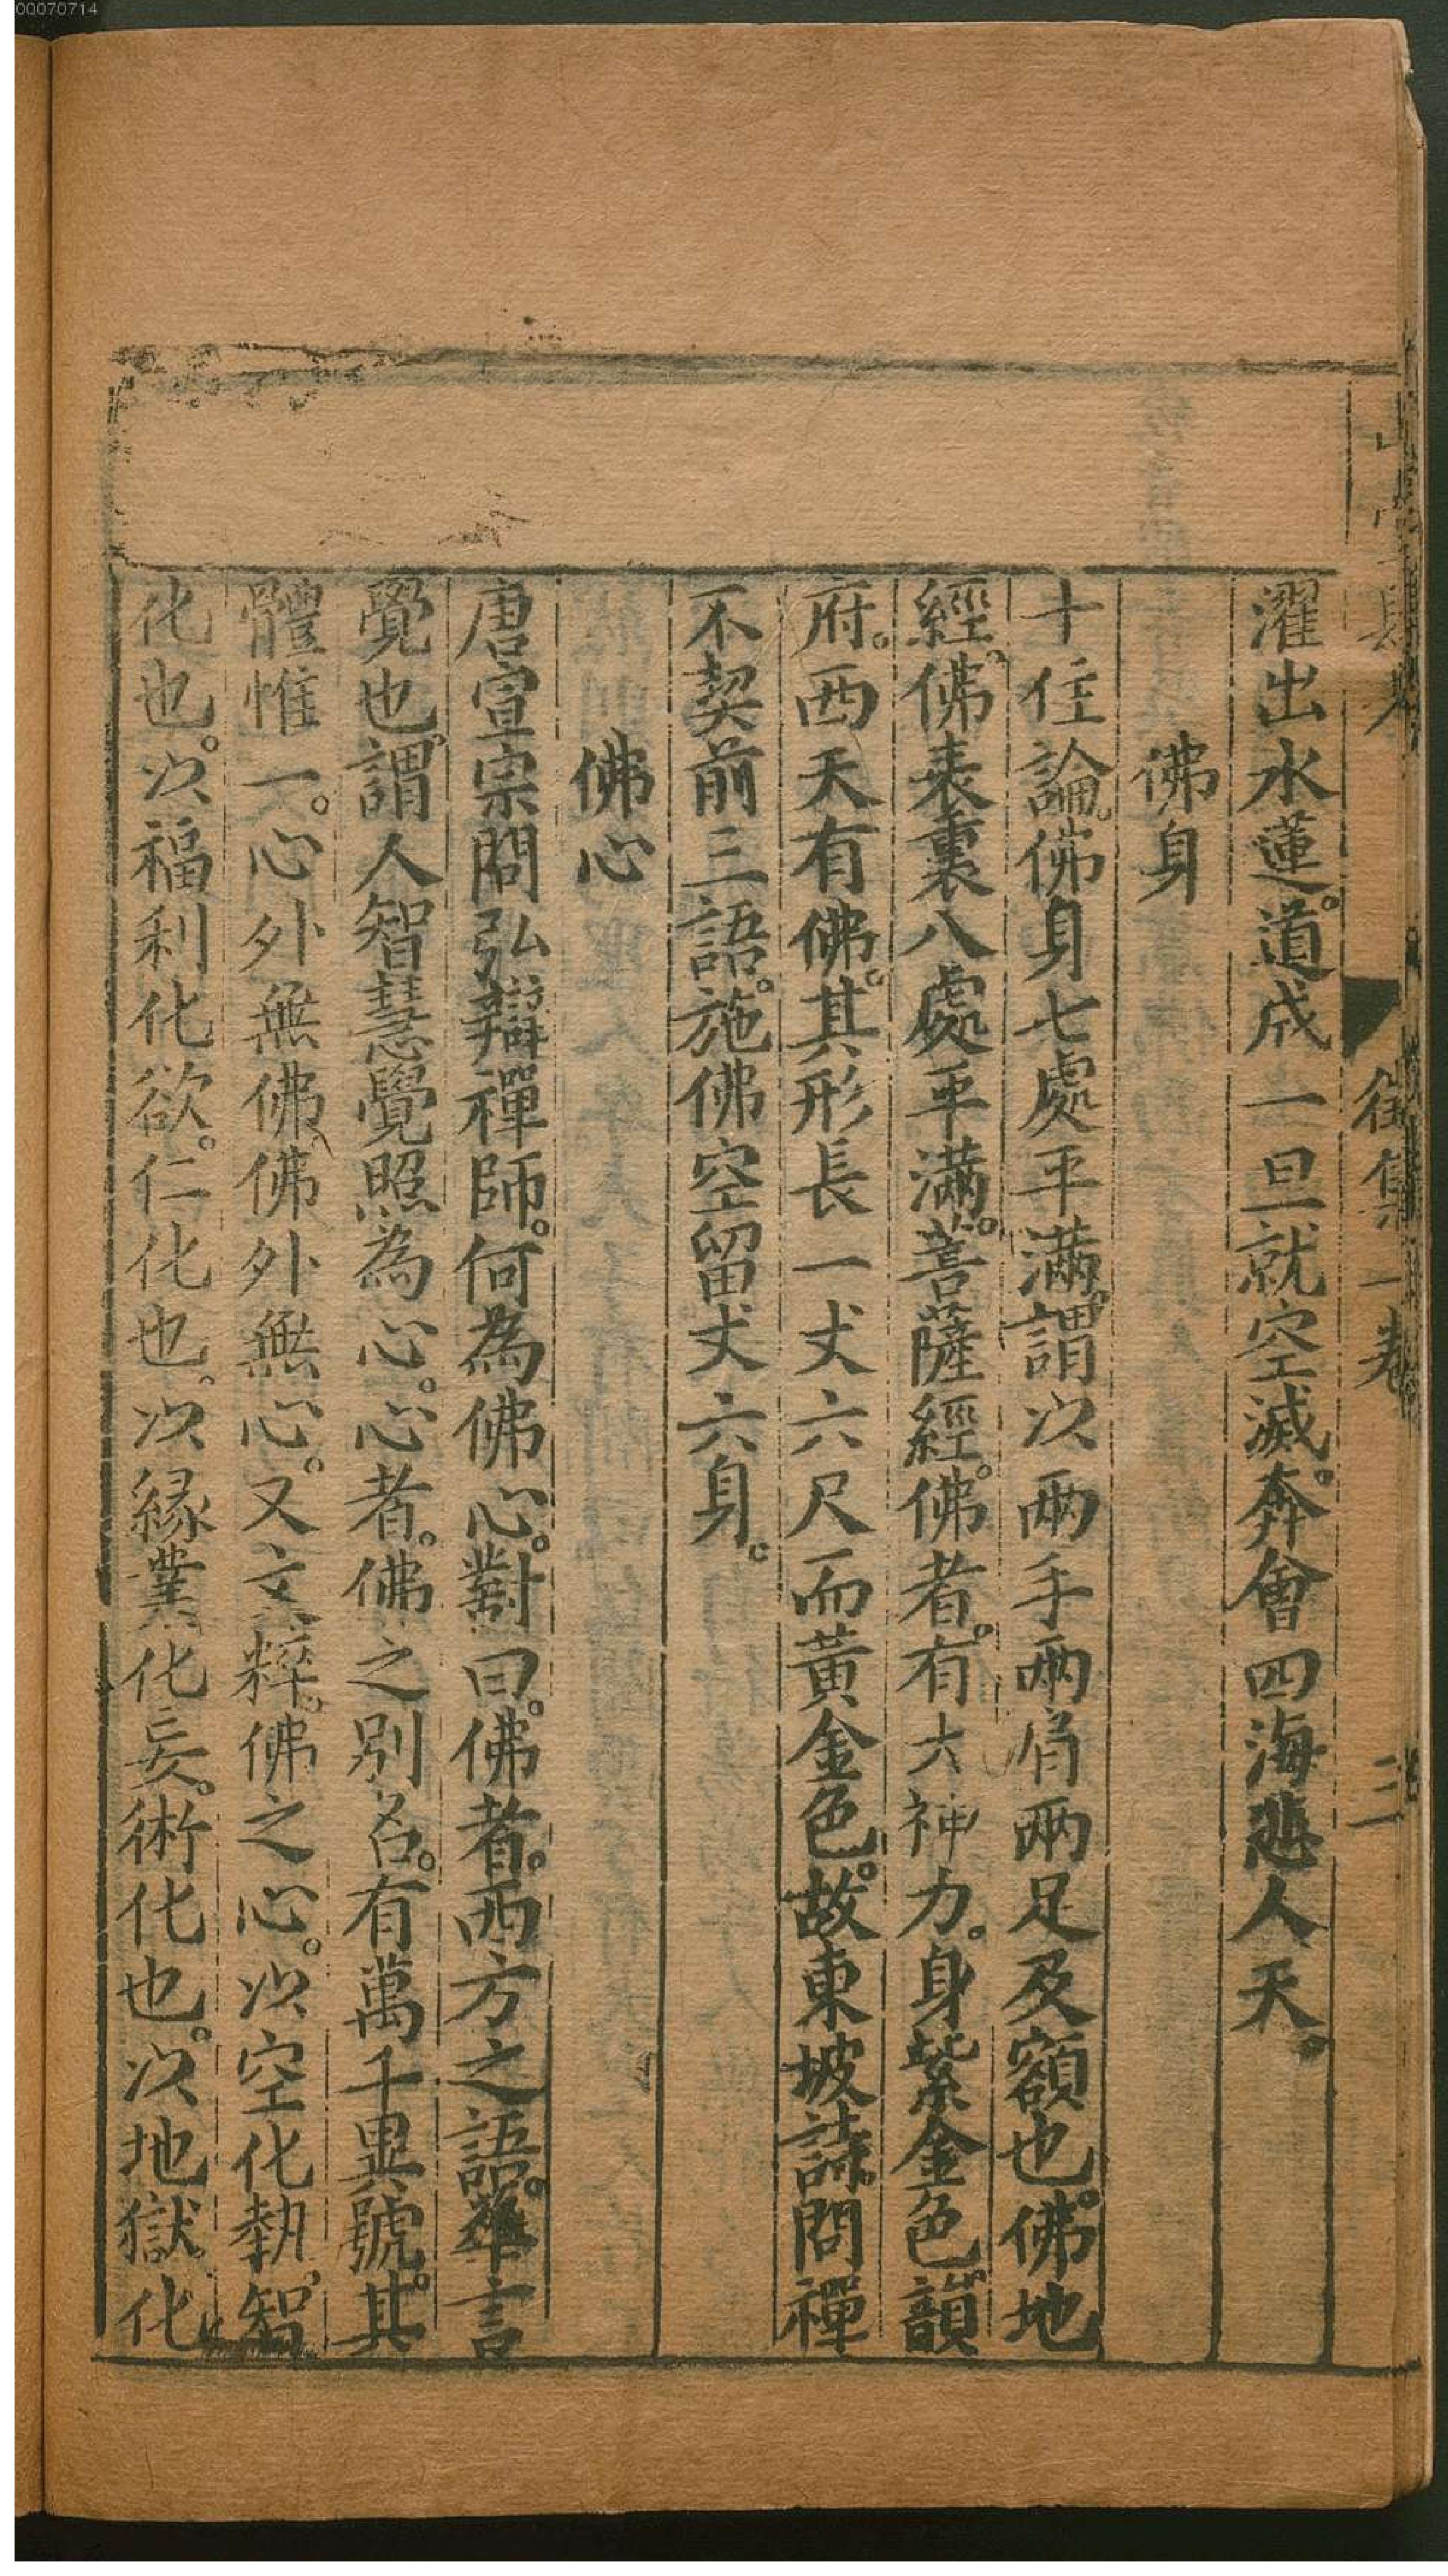 00070714
後集一卷
三
濯出水蓮。道成一旦就空滅。奔會四海悲人天。
佛身
十住論。佛身七處平滿。謂以兩手兩肩兩足及額也。佛地
經。佛表裏八處平滿。菩薩經。佛者。有六神力。身紫金色。韻
府。西天有佛。其形長一丈六尺而黃金色。故東坡詩。問禪
不契前三語。施佛空留丈六身。
佛心
唐宣宗問弘辯禪師。何為佛心。對曰。佛者。西方之語。華言
覺也。謂人智慧覺照為心。心者。佛之別名。有萬千異號。其
體惟一。心外無佛、佛外無心。又文粹。佛之心。以空化執、智
化也。以福利化欲。仁化也。以緣業化妄。術化也。以地獄化